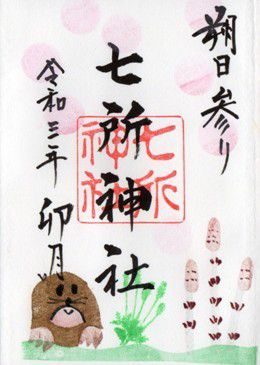 朔日参り
七所神社
七所神社
令和三年 卯月